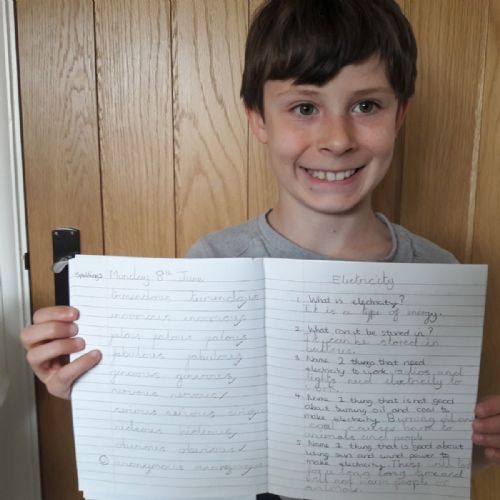 Spellings Monday 8th June
tremendous tremendous
enormous enormous
jelous jelous jelous
fabulous fabulous
generous generous
nervous nervous
serious serious
hideous hideous
obvious obvious
anonymous anonymous
Electricity
1. What is electricity?
It is a type of energy.
2. What can it be stored in?
It can be stored in
3. Name 2 things that need
electricity to work. radios and
lights need electricity to
work.
4. Name 1 thing that is not good
about burning oil and coal to
make electricity. Burning oil and
coal causes harm to
animals and people
5. Name 1 thing that is good about
using sun and wind power to
make electricity. These will last
for a long long time and
will not harm people or
animals.